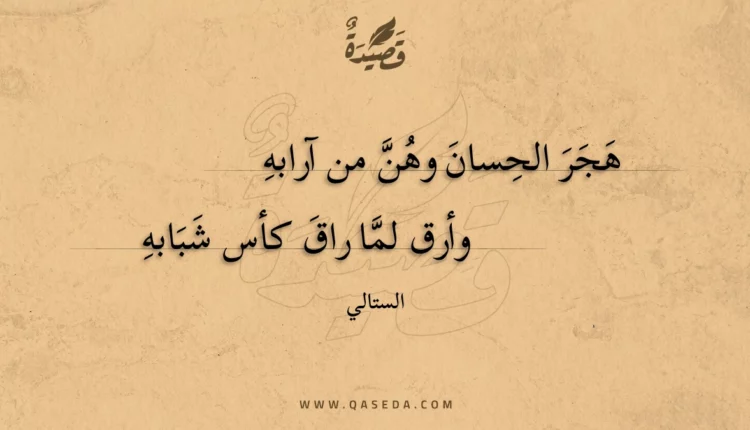 قَصِيْدَةٌ
هَجَرَ الحِسانَ وهُنَّ من آرابهِ
وأرق لمَّا راقَ كأس شَبَابهِ
الستالي
WWW.QASEDA.COM